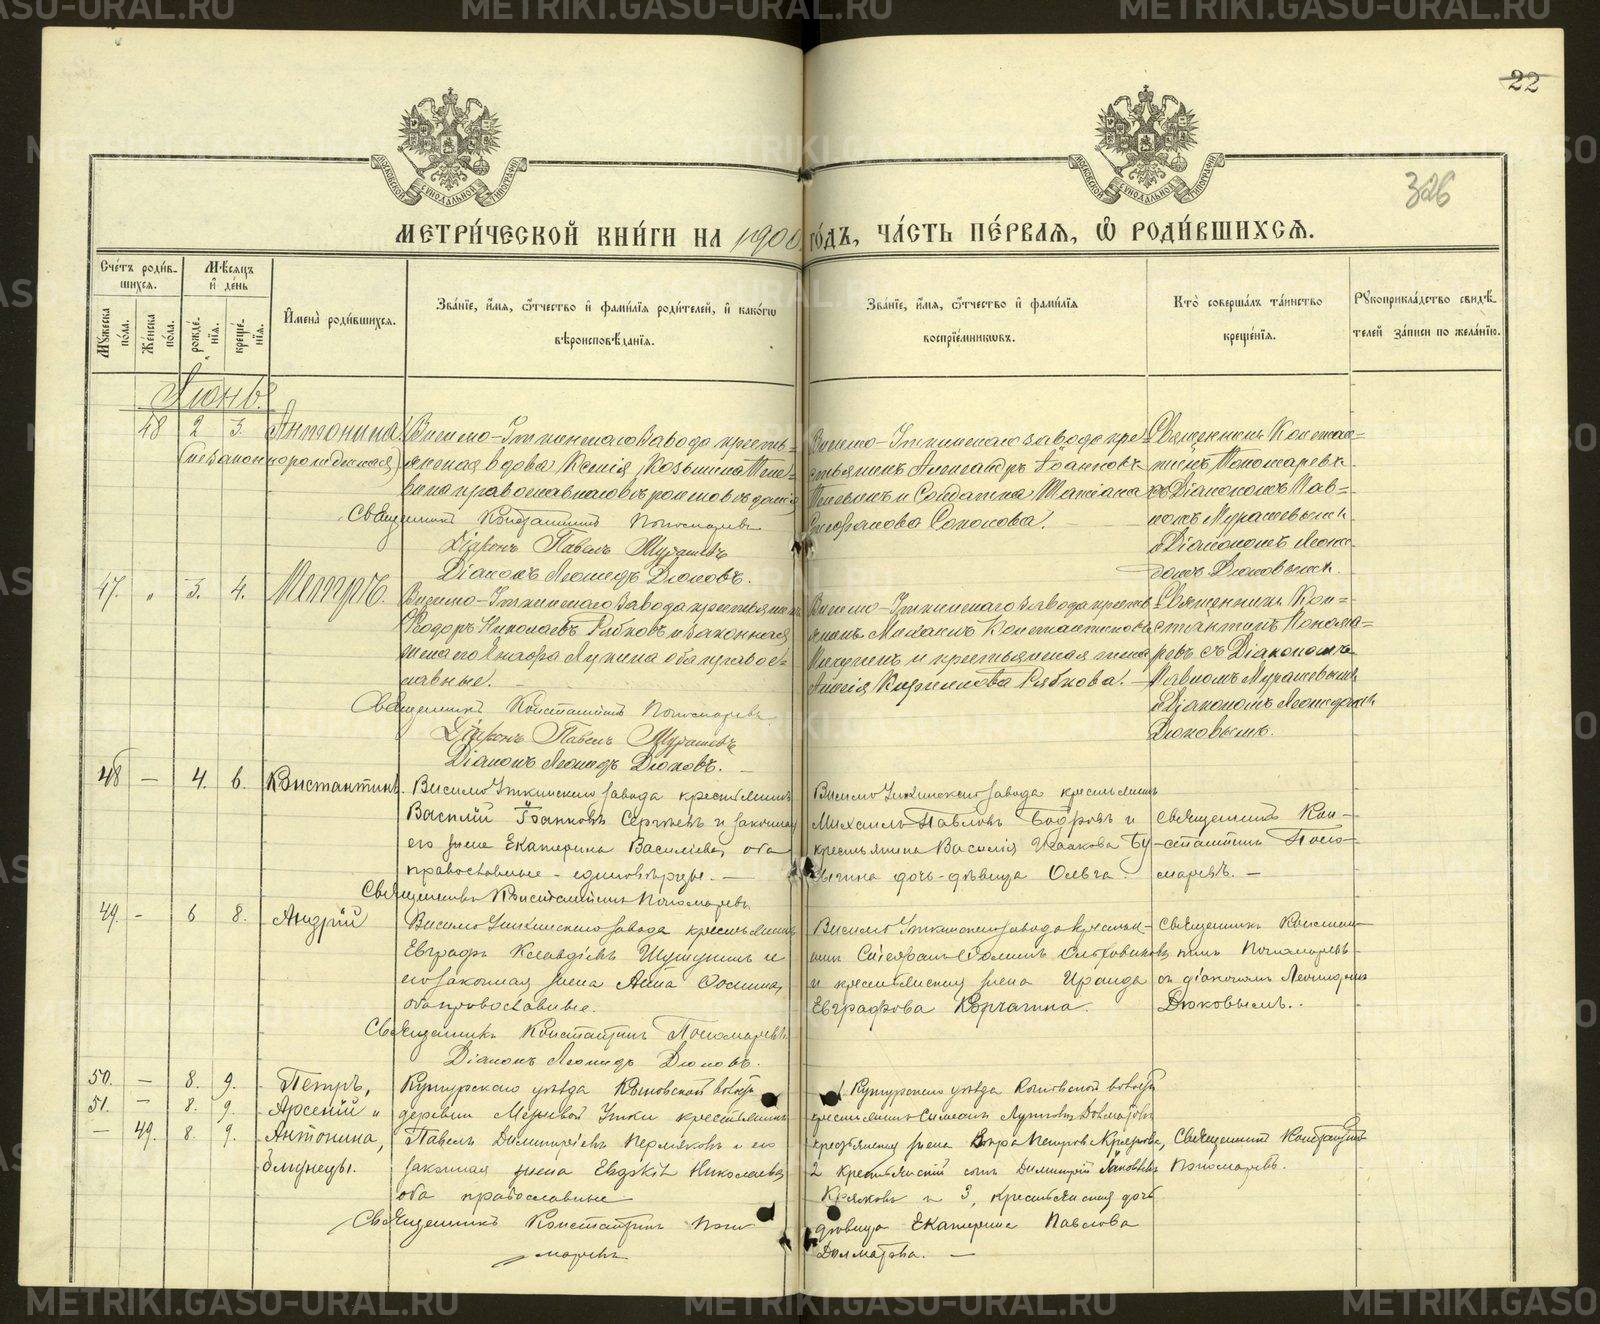 METRIKI.GASU-URAL.RU
22
326
МОСКОВСКОЙ СѴНОДАЛЬНОЙ ТИПОГРАФІИ
МЕТРИ́ЧЕСКОЙ КНИ́ГИ НА 1900 ГО́ДЪ, ЧА́СТЬ ПЕ́РВАЯ, Ѽ РОДИ́ВШИХСЯ.
Сче́тъ роди́вшихся.
Мꙋжеска по́ла.
Же́нска по́ла.
Мѣ́сяцъ и҆ де́нь
рожде́нїя.
креще́нїя.
И҆мена̀ роди́вшихся.
Зва́нїе, и҆́мя, ѻ҆́тчество и҆ фами́лїя роди́телей, и҆ како́гѡ
вѣроисповѣ́данїя.
Зва́нїе, и҆́мя, ѻ҆́тчество и҆ фами́лїя
воспрїе́мникѡвъ.
Кто̀ соверша́лъ та́инство
креще́нїя.
Рꙋкоприкла́дство свидѣ́-
телей за́писи по жела́нїю.
Іюнь.
48 2 3. Антонина
(незаконнорожденная)
Висимо-Уткинскаго завода кресть-
янская вдова Ксенія Козьмина
православнаго вѣроисповѣданія
Священникъ Константинъ Пономаревъ
Діаконъ Павелъ Мурашевъ
Діаконъ Леонидъ Дюковъ.
Висимо-Уткинскаго завода кре-
стьянинъ Александръ Іоанновъ
и Солдатка Татіана
Стефанова Соколова.
Священникъ Констан-
тинъ Пономаревъ
съ Діакономъ Пав-
ломъ Мурашевымъ
и Діакономъ Леони-
домъ Дюковымъ.
47. „ 3. 4. Петръ.
Висимо-Уткинскаго завода крестьянинъ
Ѳеодоръ Николаевъ Рябковъ и законная
жена его Лукина оба правос-
лавные.
Священникъ Константинъ Пономаревъ
Діаконъ Павелъ Мурашевъ
Діаконъ Леонидъ Дюковъ.
Висимо-Уткинскаго завода кресть-
янинъ Михаилъ Константиновъ
и крестьянская жена
Кириллова Рябкова.
Священникъ Кон-
стантинъ Понома-
ревъ съ Діакономъ
Павломъ Мурашевымъ
и Діакономъ Леонидомъ
Дюковымъ.
48 — 4. 6. Константинъ.
Висимо Уткинскаго завода крестьянинъ
Василій Іоанновъ Сергѣевъ и законная
его жена Екатерина Василіева, оба
православные - единовѣрцы. —
Священникъ Константинъ Пономаревъ
Висимо Уткинскаго завода крестьянинъ
Михаилъ Павловъ Бодровъ и
крестьянина Василія Исаакова Бу-
дочь-дѣвица Ольга
Священникъ Кон-
стантинъ Поно-
маревъ. —
49. - 6 8. Андрій
Висимо Уткинскаго завода крестьянинъ
Евграфъ Клавдіевъ Шушунинъ и
его законная жена Анна
оба православные.
Священникъ Константинъ Пономаревъ
Діаконъ Леонидъ Дюковъ.
Висимо Уткинскаго завода крестьян-
инъ Стефанъ
и крестьянская жена Ираида
Евграфова Корчагина.
Священникъ Констан-
тинъ Пономаревъ
съ діакономъ Леонидомъ
Дюковымъ.
50. — 8. 9. Петръ,
51. — 8. 9. Арсеній и
— 49. 8. 9. Антонина,
близнецы.
Кунгурскаго уѣзда Кыновской волости
деревни Мерзевой Утки крестьянинъ
Павелъ Димитріевъ Пермяковъ и его
законная жена Евдокія Николаева,
оба православные
Священникъ Константинъ Поно-
маревъ
1. Кунгурскаго уѣзда Кыновской волости
крестьянинъ Симеонъ Долматовъ
крестьянская жена Вѣра Петрова
2 крестьянскій сынъ Димитрій
Кряковъ и 3, крестьянская дочь
дѣвица Екатерина Павлова
Долматова. —
Священникъ Константинъ
Пономаревъ.
METRIKI.GASU-URAL.RU